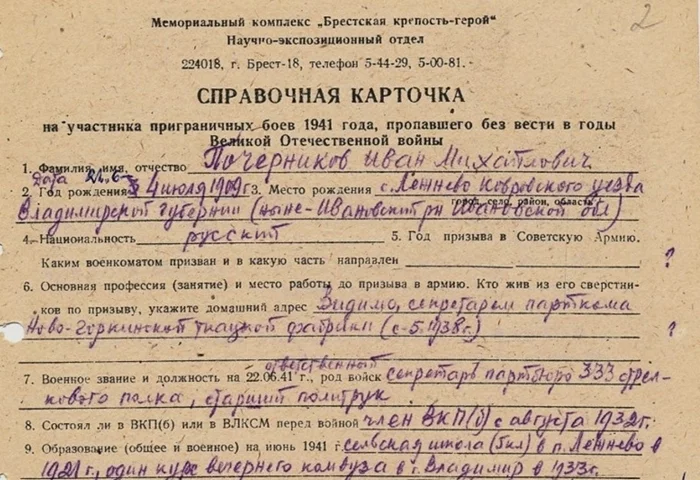 2
Мемориальный комплекс „Брестская крепость-герой“
Научно-экспозиционный отдел
224018, г. Брест-18, телефон 5-44-29, 5-00-81.
СПРАВОЧНАЯ КАРТОЧКА
на участника приграничных боев 1941 года, пропавшего без вести в годы
Великой Отечественной войны
1. Фамилия, имя, отчество Почерников Иван Михайлович
Дата
2. Год рождения 4 июля 1909 г 3. Место рождения с. Лежнево Ковровского уезда
город, село, район, область
Владимирской губернии (ныне - Ивановский р-н Ивановской обл)
4. Национальность русский 5. Год призыва в Советскую Армию.
Каким военкоматом призван и в какую часть направлен ?
6. Основная профессия (занятие) и место работы до призыва в армию. Кто жив из его сверстни-
ков по призыву, укажите домашний адрес Видимо, секретарем парткома
Ново-Горкинской ткацкой фабрики (с - 5.1938г.) ?
ответственный
7. Военное звание и должность на 22.06.41 г., род войск секретарь партбюро 333 стрел-
кового полка, старший политрук
8. Состоял ли в ВКП(б) или в ВЛКСМ перед войной член ВКП(б) с августа 1932г.
9. Образование (общее и военное) на июнь 1941 г. сельская школа (5кл) в п. Лежнево в
1921 г., один курс вечернего комвуза в г. Владимир в 1933г.